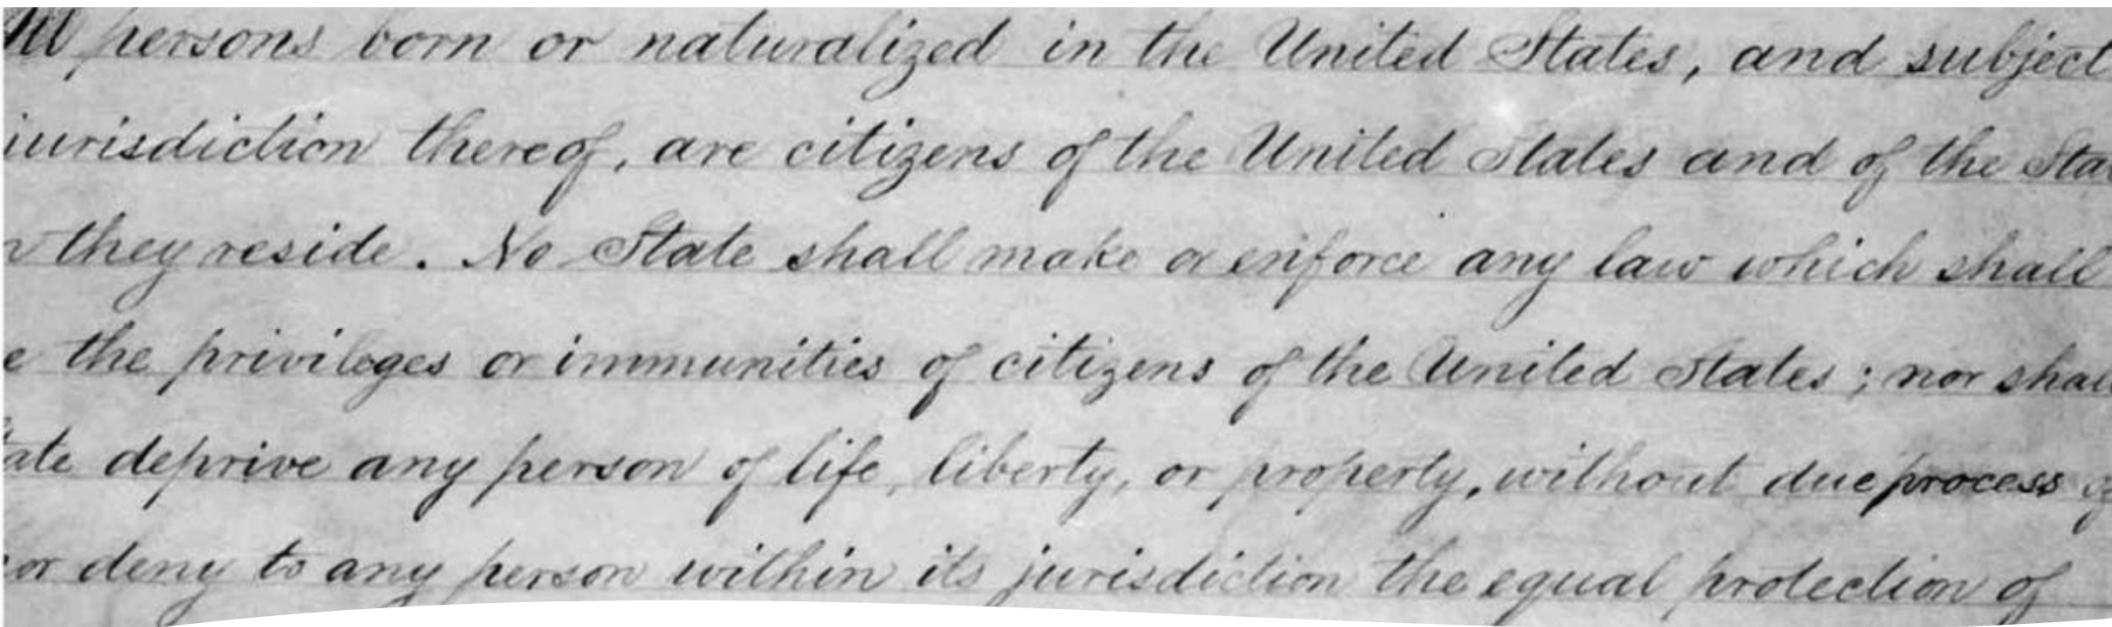 All persons born or naturalized in the United States, and subject
jurisdiction thereof, are citizens of the United States and of the Sta
they reside. No State shall make or enforce any law which shall
e the privileges or immunities of citizens of the United States; nor shall
ate deprive any person of life, liberty, or property, without due process of
or deny to any person within its jurisdiction the equal protection of